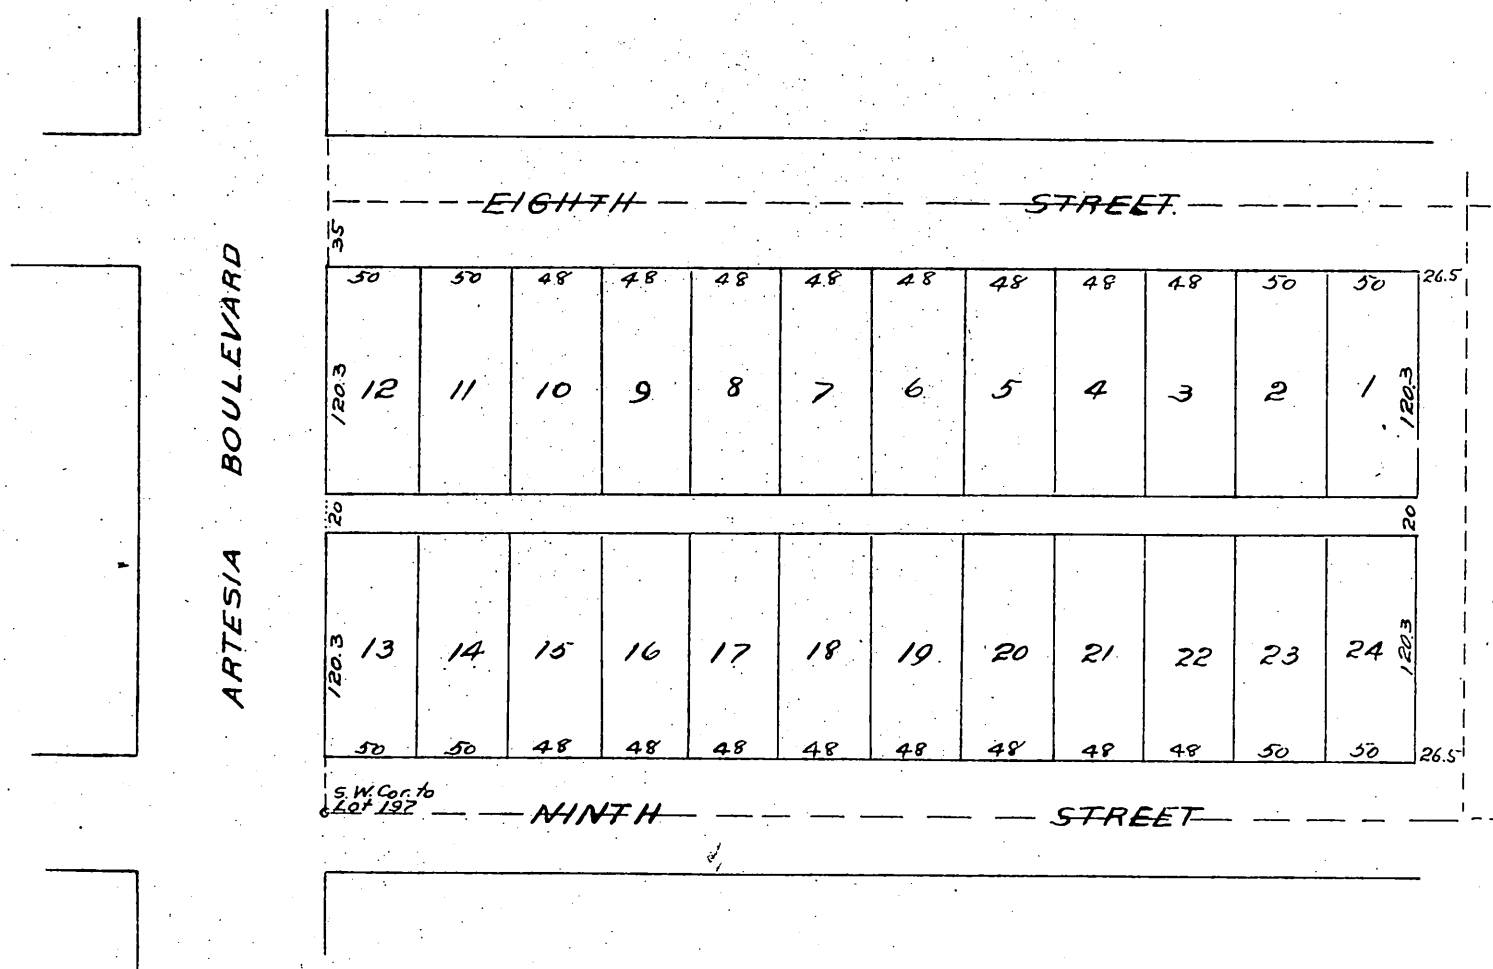 EIGHTH STREET.
35
50 50 48 48 48 48 48 48 48 48 50 50 26.5
120.3 12 11 10 9 8 7 6 5 4 3 2 1 120.3
20 20
ARTESIA BOULEVARD
120.3 13 14 15 16 17 18 19 20 21 22 23 24 120.3
50 50 48 48 48 48 48 48 48 48 50 50 26.5
S.W. Cor. to
Lot 197
NINTH STREET